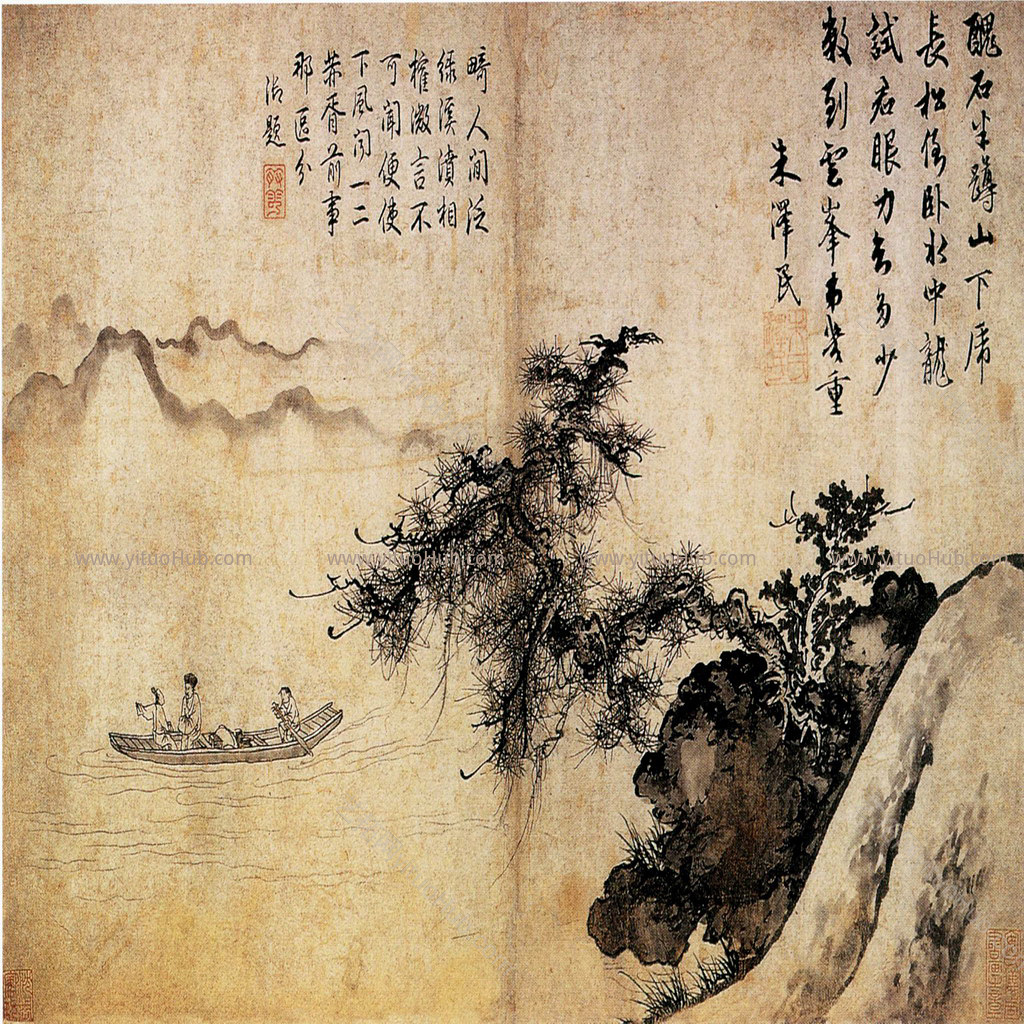 醜石半蹲山下虎
長松倒臥水中龍
試君眼力知多少
數到雲峯第幾重
朱澤民
畸人閒泛
綠溪濆相
榷微言不
可聞便使
下風聞一二
華胥前事
那區分
題
www.yituoHub.com
www.yituoHub.com
www.yituoHub.com
www.yituoHub.com